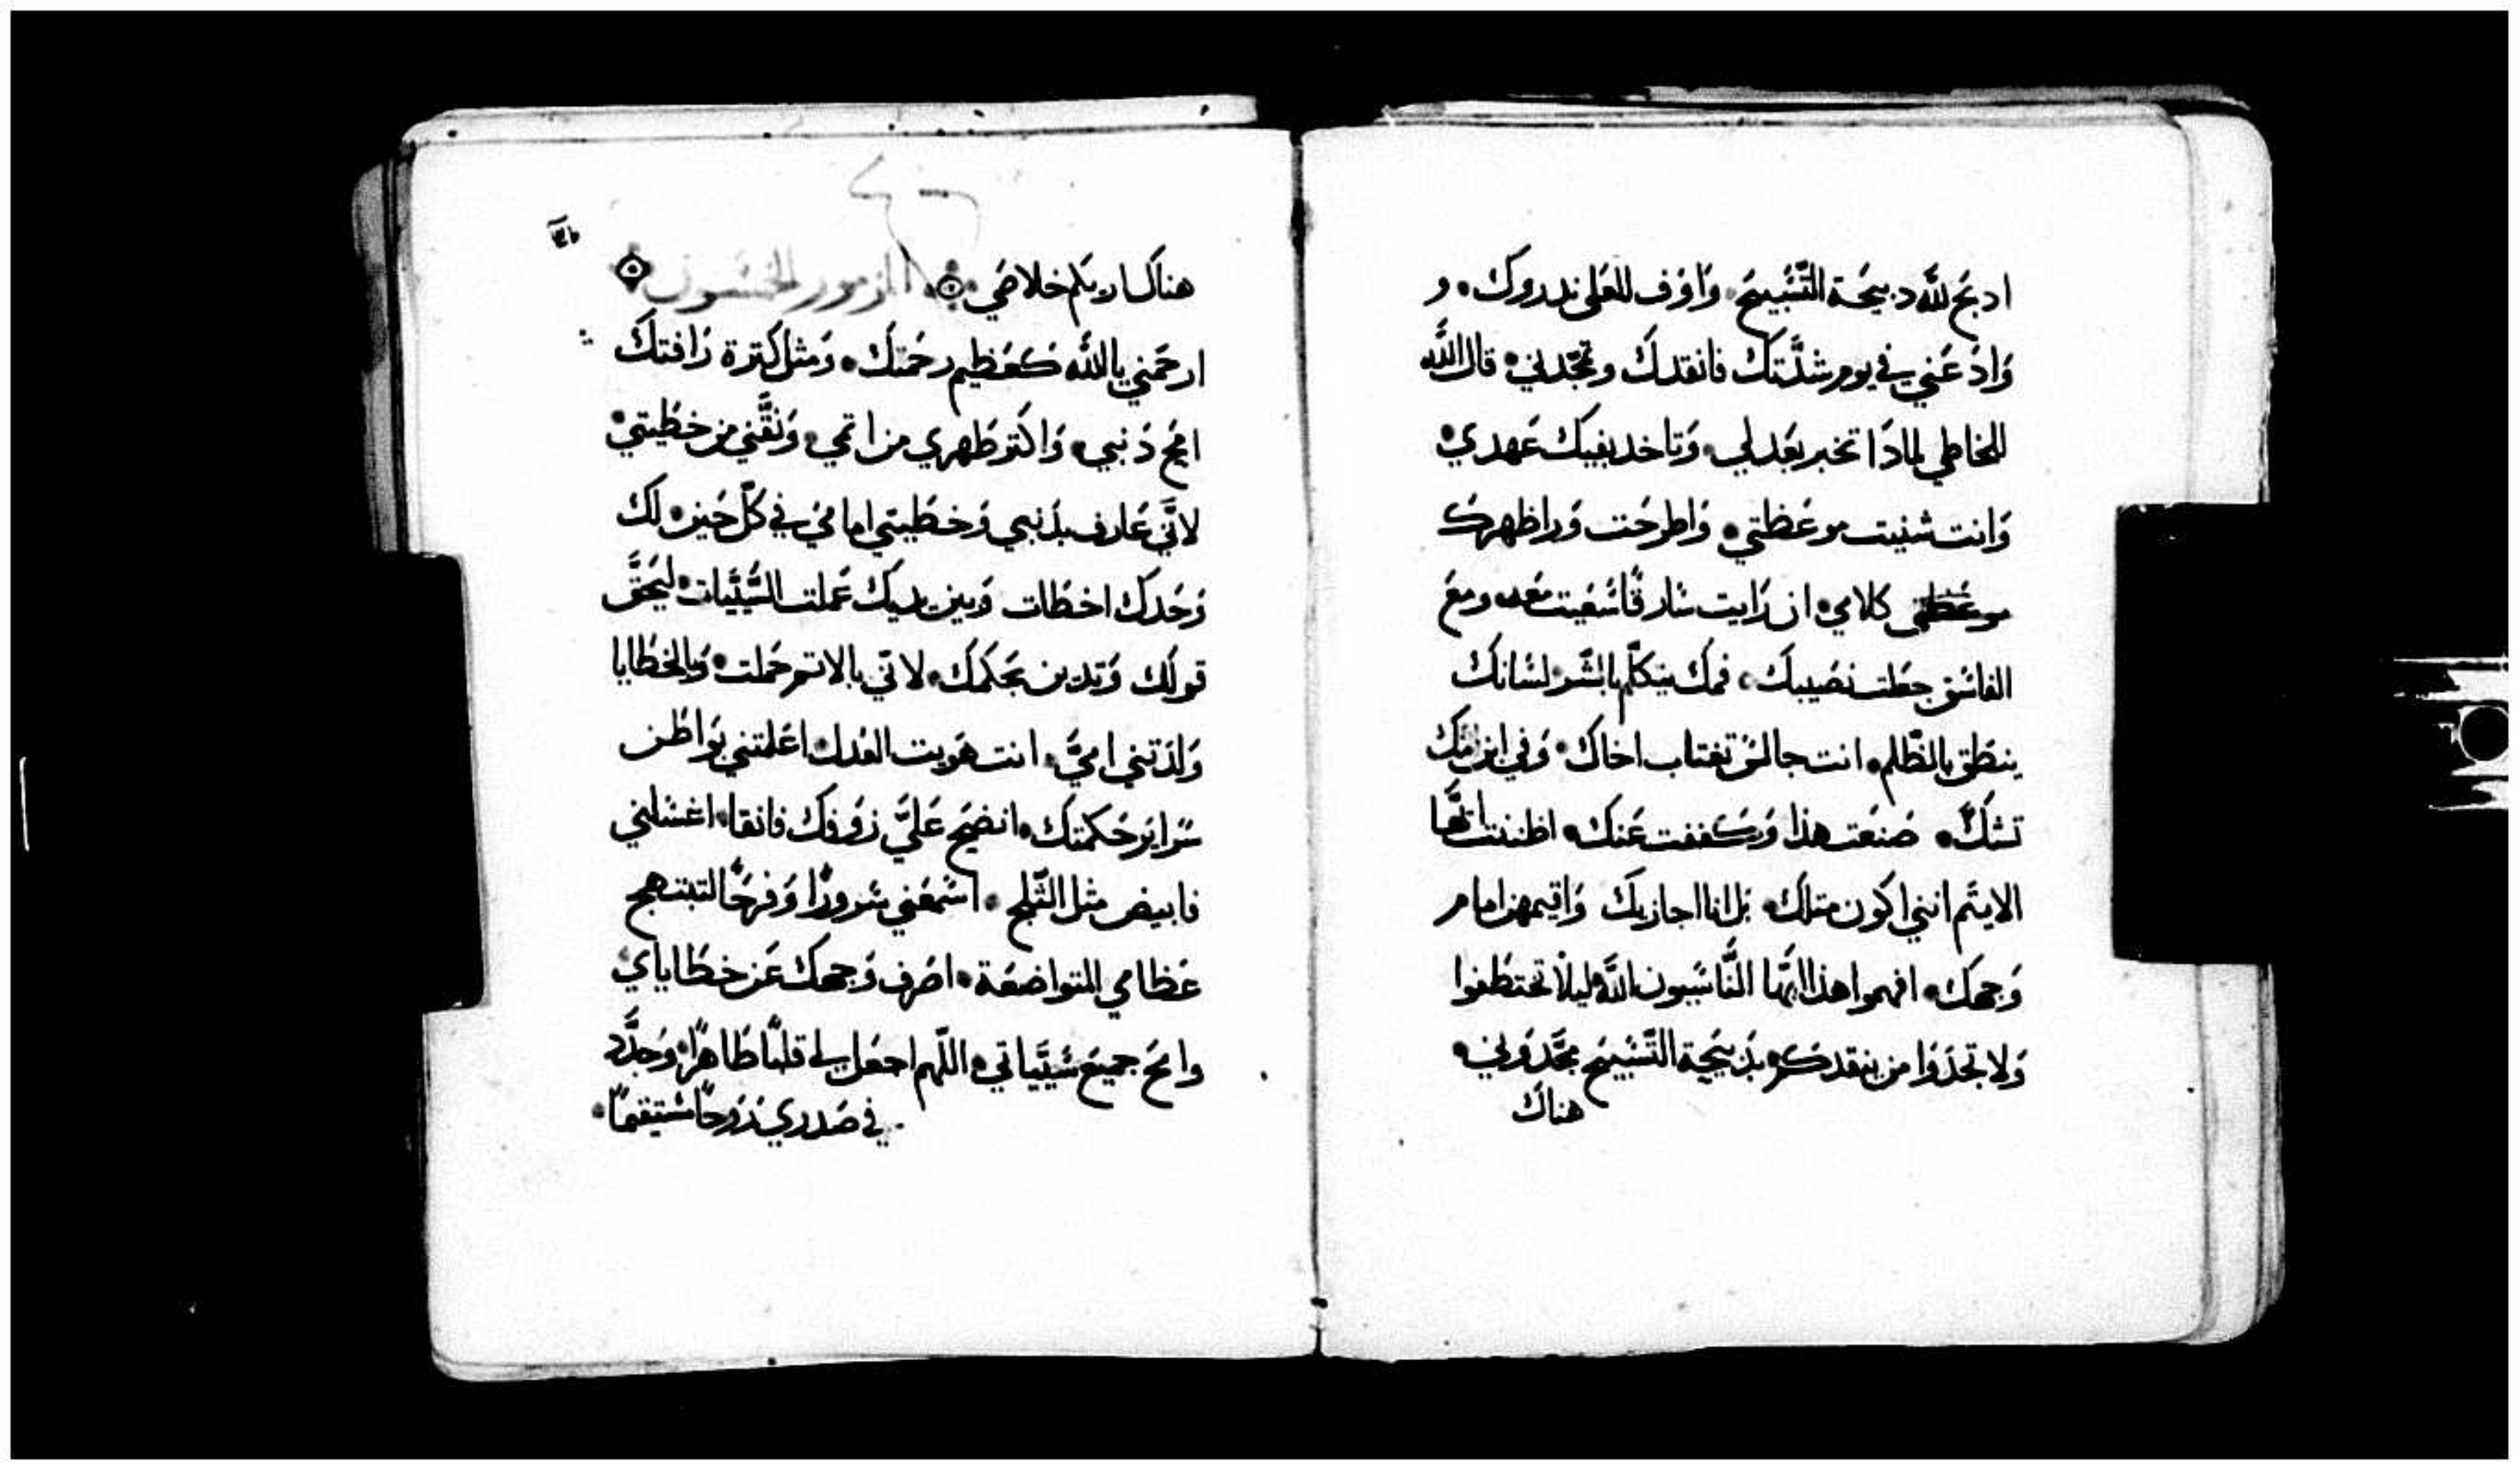 ادبح لله دبيحة التَّسبيح • وَاوَف للعَلي ندروك • و
وَادعَني في يوم شدَّتك فانقدك وتمجّدني • قال الله
للخاطي لمادَا تخبر بعَدلي • وَتاخد بفيك عَهدي •
وَانت شنيت موعَظتي • وَاطرحَت وَرا ظهرك
كلامي • ان رَايت سَارقًا سَعَيت معَه ومعَ
الفاسَق جعَلت نصَيبك • فمك يتكلّم بالشَّر لسَانك
ينطَق بالظّلم • انت جالسَ تغتاب اخاك • وَفي ابن امّك
تشكّ • صَنعَت هذا وَسَكففت عَنك • اظننت انَّها
الايتَم انني اكون متلك • بَل انا اجازيك وَاقيمهن امام
وَجهك • افهموا هذا ايّها النَّاسَيون الله ليلّا تختطَفوا
وَلا تجدَوا من ينقدكم • بدَبيحَة التَّسَبيح تمجَّدَوني •
هناك
هناك اريكم خلاصَي • المزمور الخمسَون
ارحَمني يا الله كعَظيم رحَمتك • وَمثل كترة رَافتك
امحَ دَنبي • وَاكتر طَهري من اتمي • وَنقَّني من خطَيتي •
لانّي عَارف بدَنبي وَخطَيتي امامي في كلّ حَين • لك
وَحَدك اخطَات وَبين يديك عَملت السَّيَّيات • ليحَقَّ
قولك وَتدين بحَكمك • لانّي بالاتم حَملت • وَبالخطَايا
وَلدَتني اميَّ • انت هَويت العَدل • اعَلمتني بوَاطَن
سَراير حَكمتك • انضَح عَليَّ زوَفك فانقا • اغسَلني
فابيض مثل الثّلج • اسَمعَني سَرورًا وَفرحًا لتبتهج
عَظامي المتواضعَة • اصَرف وَجهك عَن خطَاياي
وامحَ جميعَ سَيَّياتي • اللّهم اجعَل لي قلبًا طَاهرًا • وَجدَّد
في صَدري رَوحًا مسَتيقمًا •